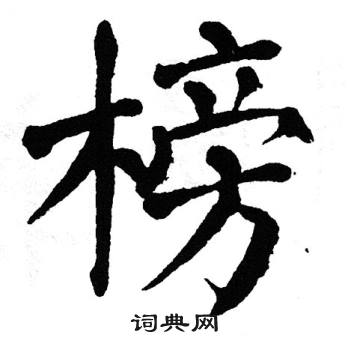 榜
词典网